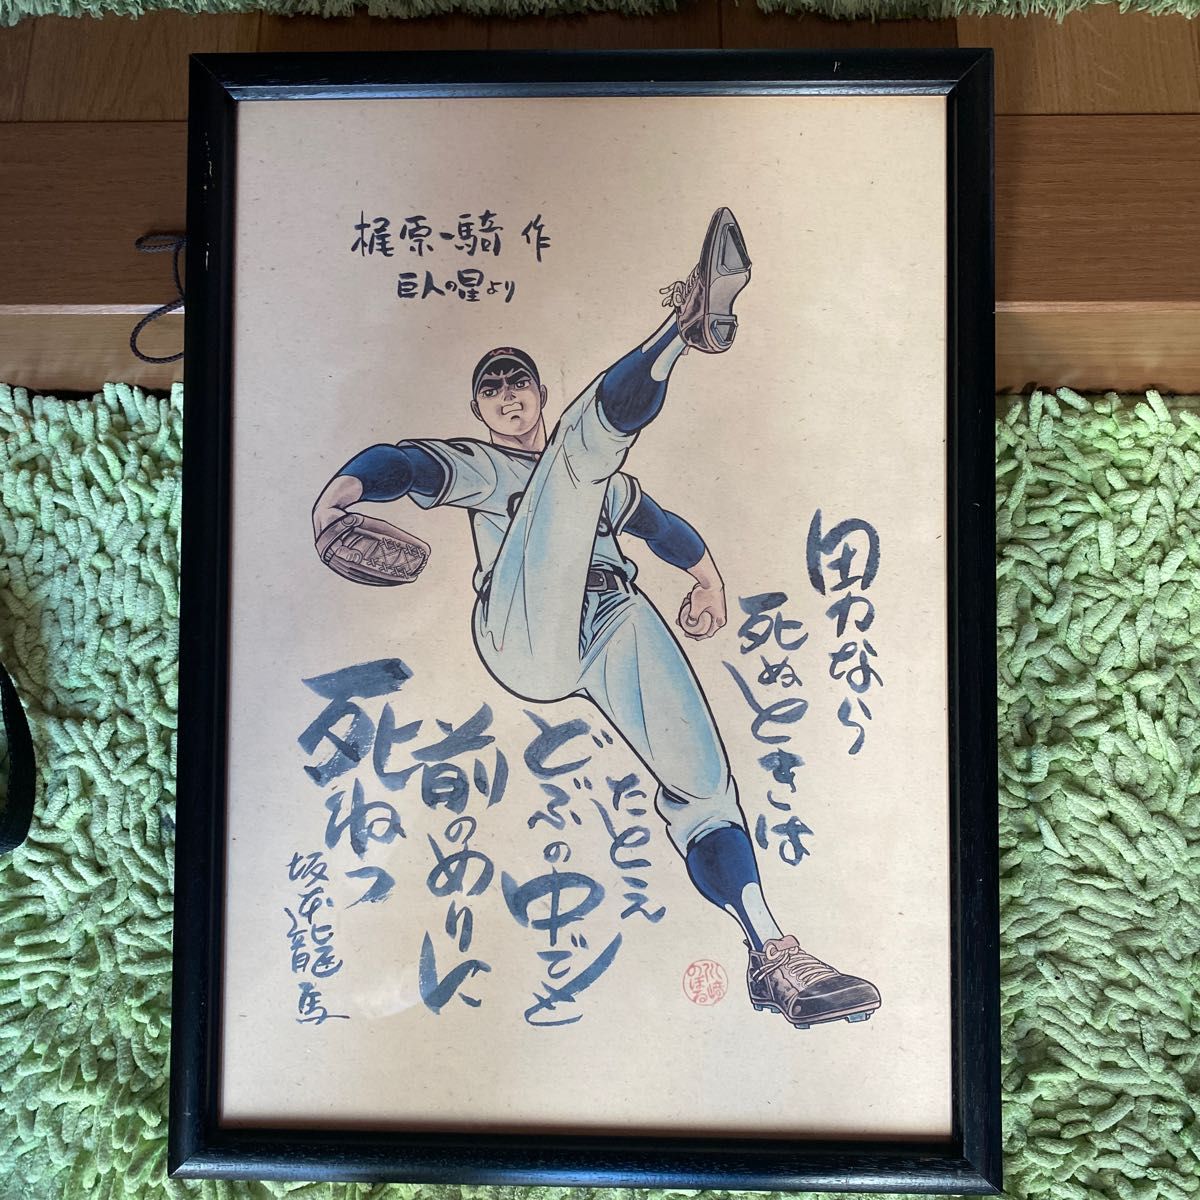 梶原一騎 作
巨人の星より
男なら
死ぬときは
たとえ
どぶの中でと
前のめりに
死ねっ
坂本龍馬
川崎
のぼる